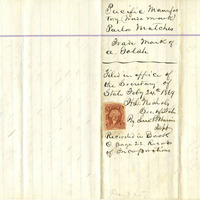 Pacific Manufac
tory (Trade mark)
Parlor Matches
Trade Mark of
A. Golah
Filed in office of
the Secretary of
State Feby 24th 1869
H. L. Nichols
Secy of State
By
Depy
Recorded in Book
Page 22 Records
of Incorporations